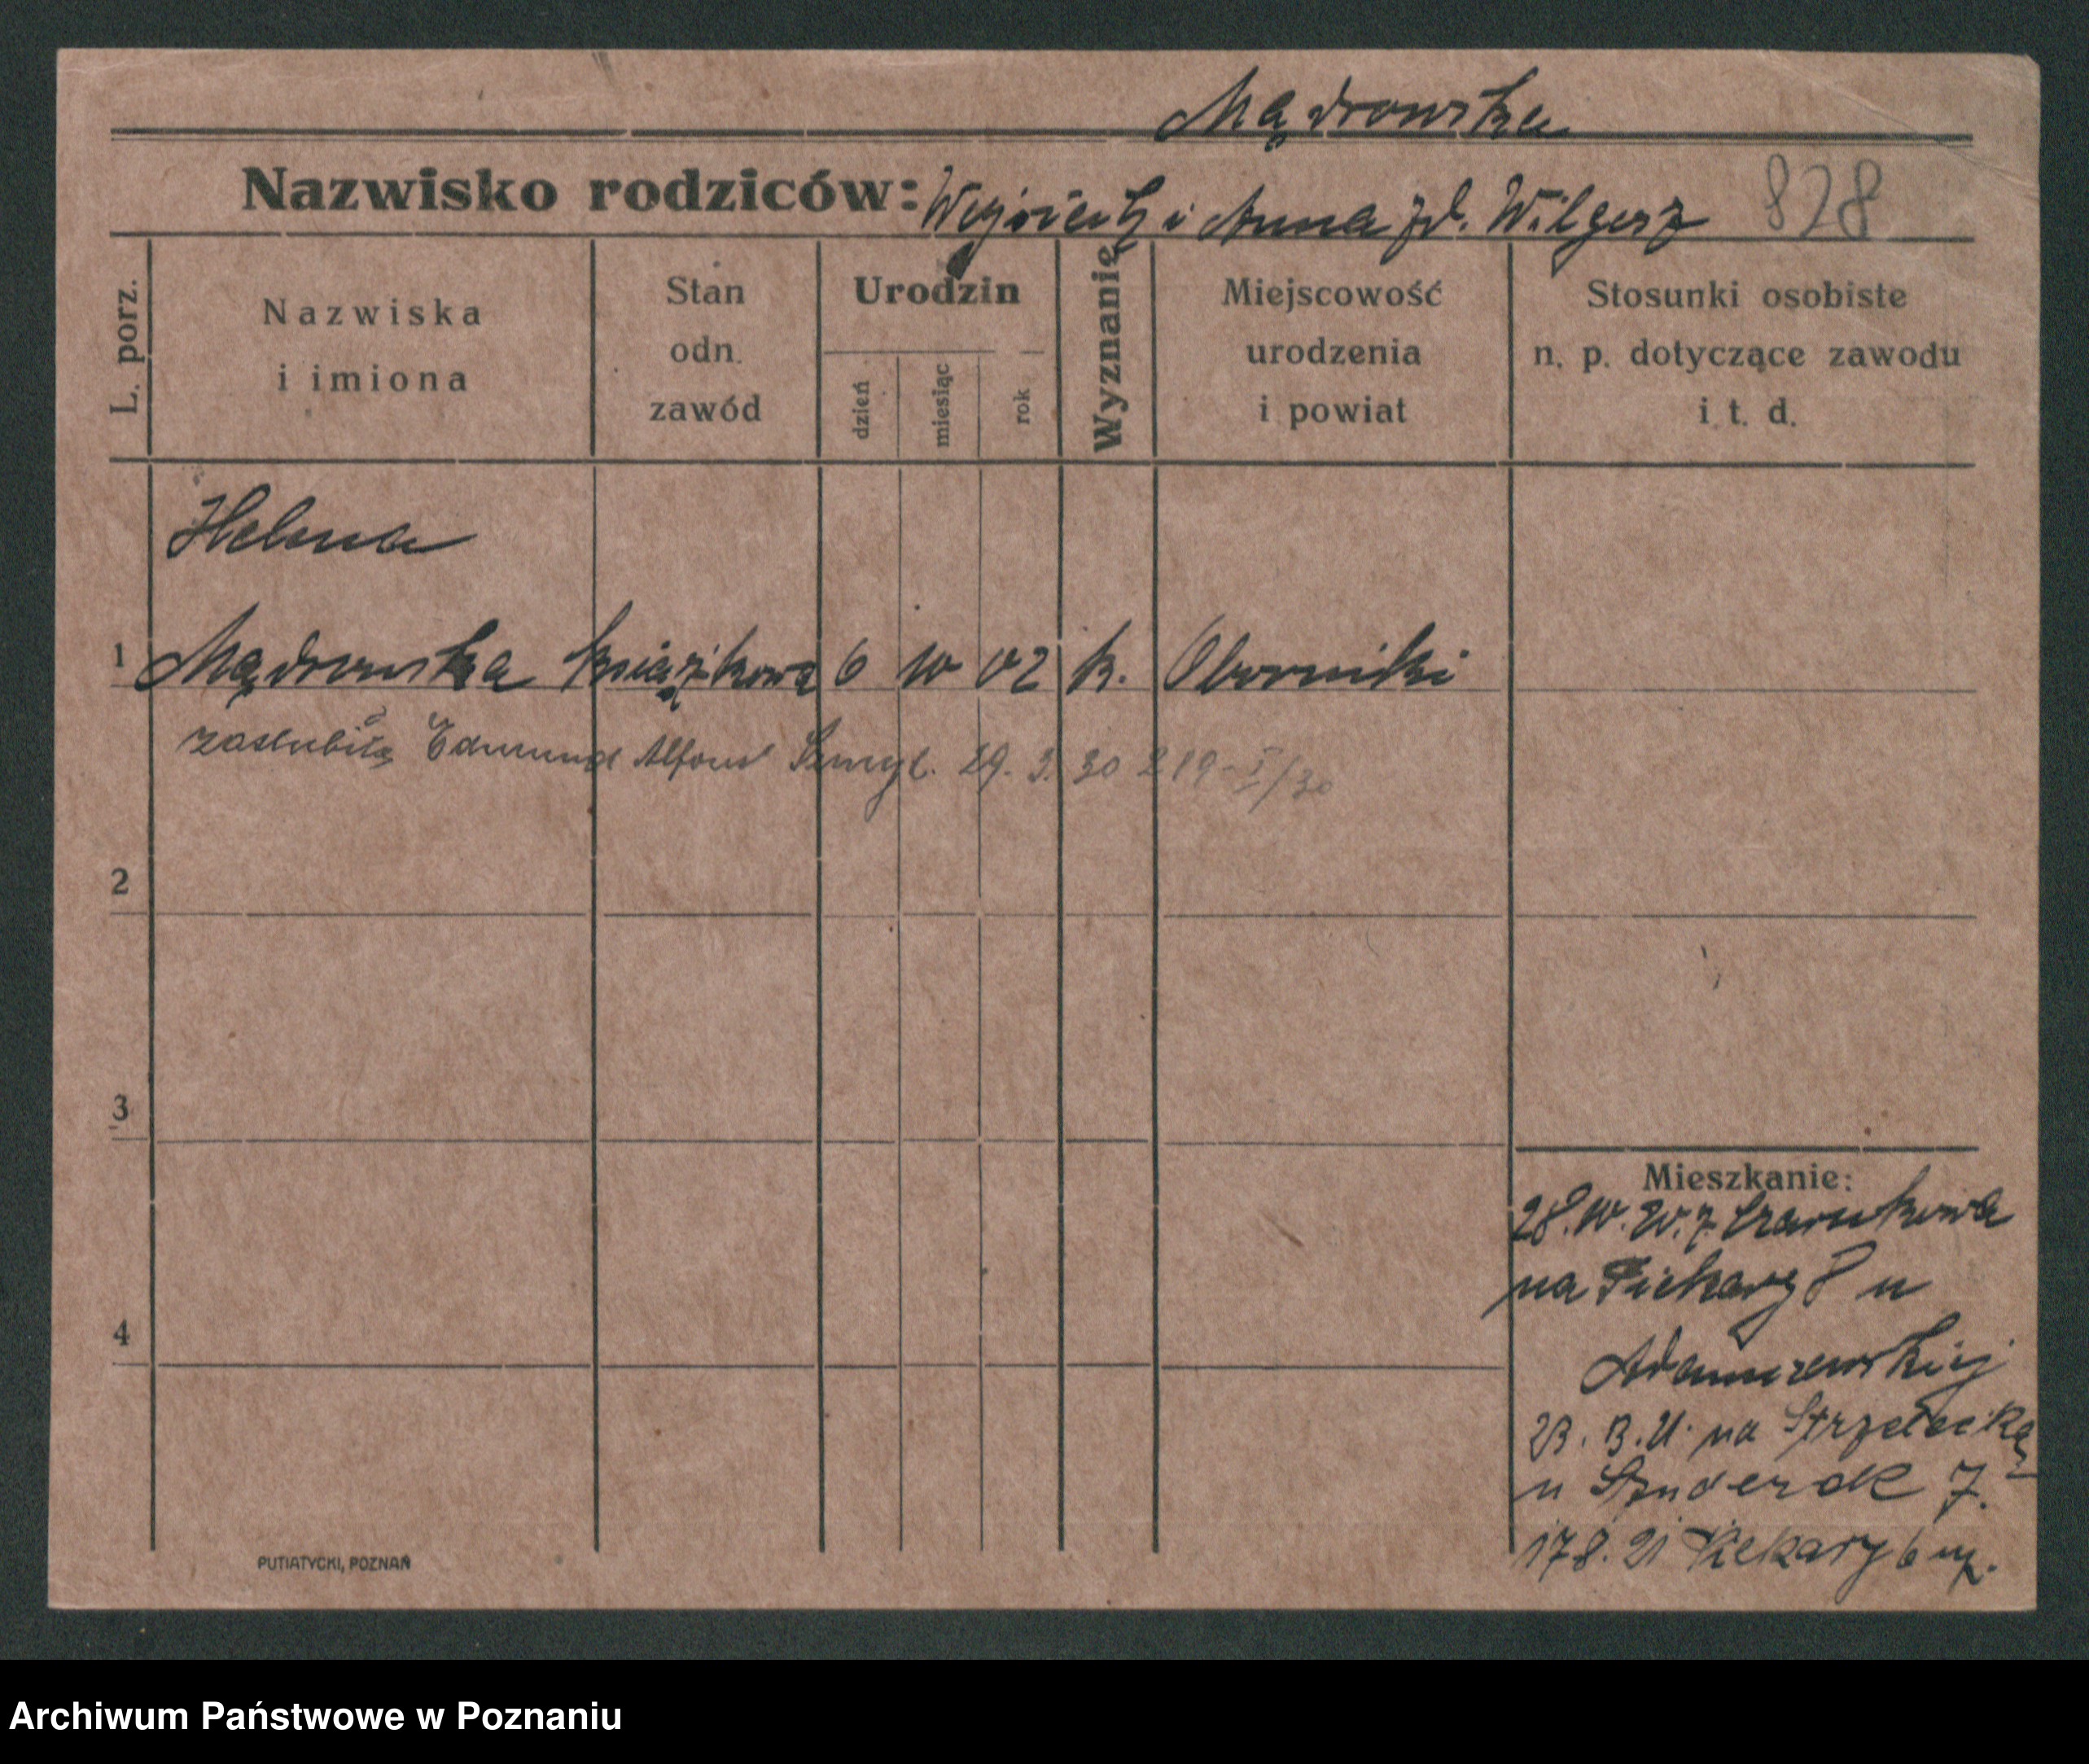 Mądrowska
Nazwisko rodziców: Wojciech i Anna zd. Wilgosz 828
L. porz.
Nazwiska
i imiona
Stan
odn.
zawód
Urodzin
dzień
miesiąc
rok
Wyznanie
Miejscowość
urodzenia
i powiat
Stosunki osobiste
n. p. dotyczące zawodu
i t. d.
Helena
1 Mądrowska książkowa 6 10 02 k. Oborniki
zaslubiła Edmund Alfons 29. 3. 30 219-I/30
2
3
4
Mieszkanie:
28.10. 20. z Czarnkowa
na Piekary 8 u
Adamczewskiej
na Strzelecką
u 7.
17 8. 21 Piekary 6
PUTIATYCKI, POZNAŃ
Archiwum Państwowe w Poznaniu